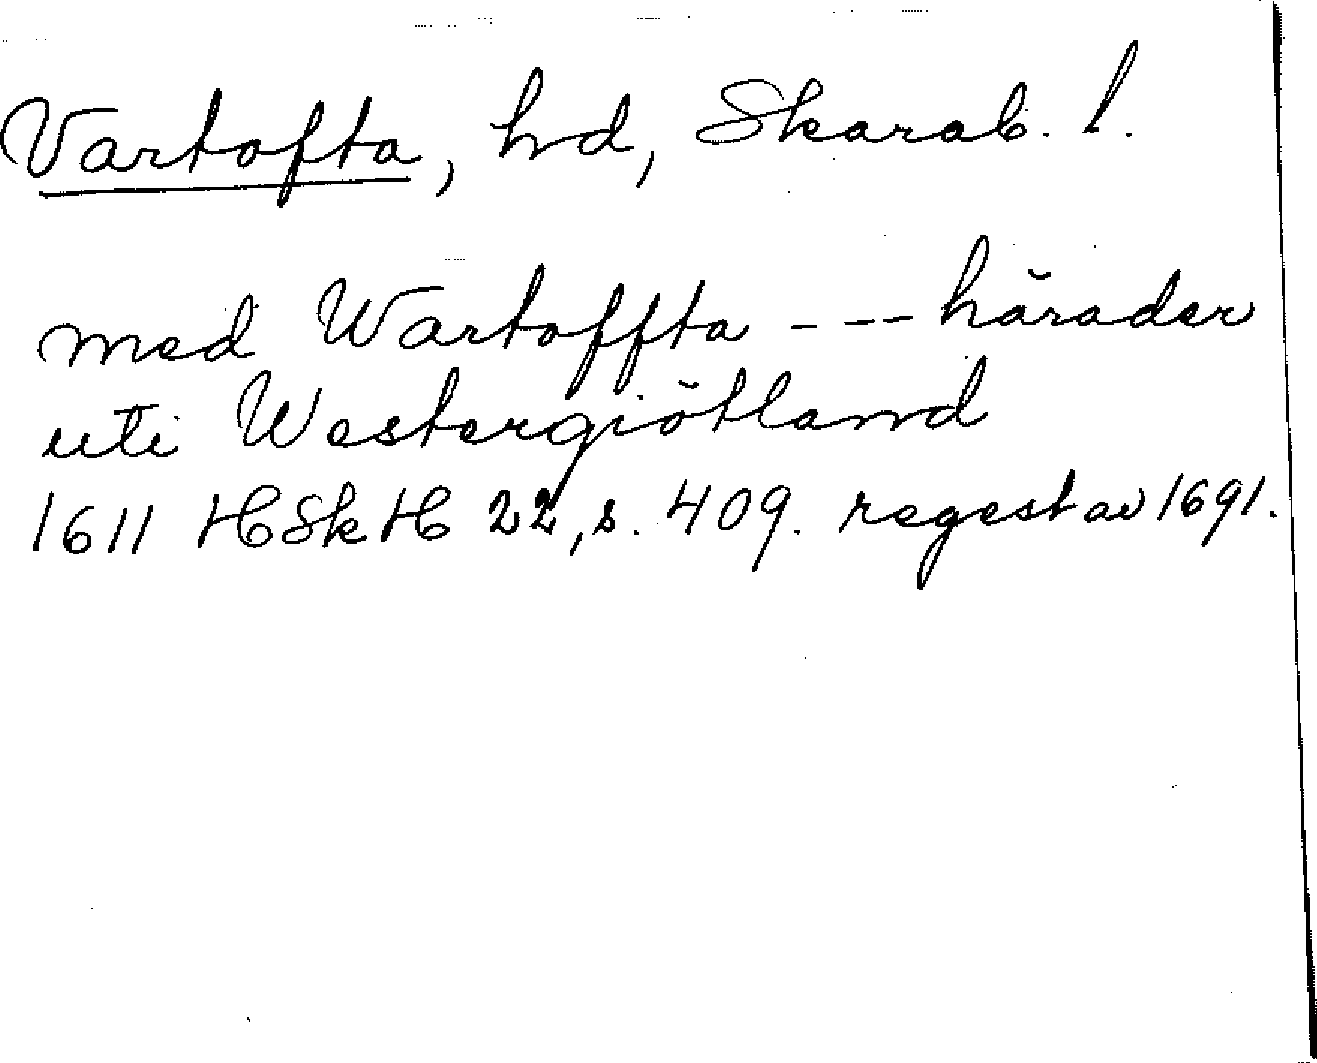 Vartofta, hd, Skarab. l.
med Wartoffta --- härader
uti Westergiötland
1611 HSkH 22, s. 409. regest av 1691.